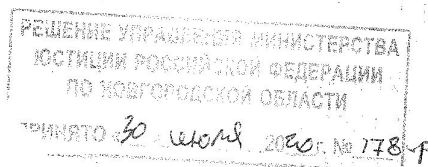 РЕШЕНИЕ УПРАВЛЕНИЯ МИНИСТЕРСТВА
ЮСТИЦИИ РОССИЙСКОЙ ФЕДЕРАЦИИ
ПО НОВГОРОДСКОЙ ОБЛАСТИ
ПРИНЯТО «30 июля 2020 г. № 178-р